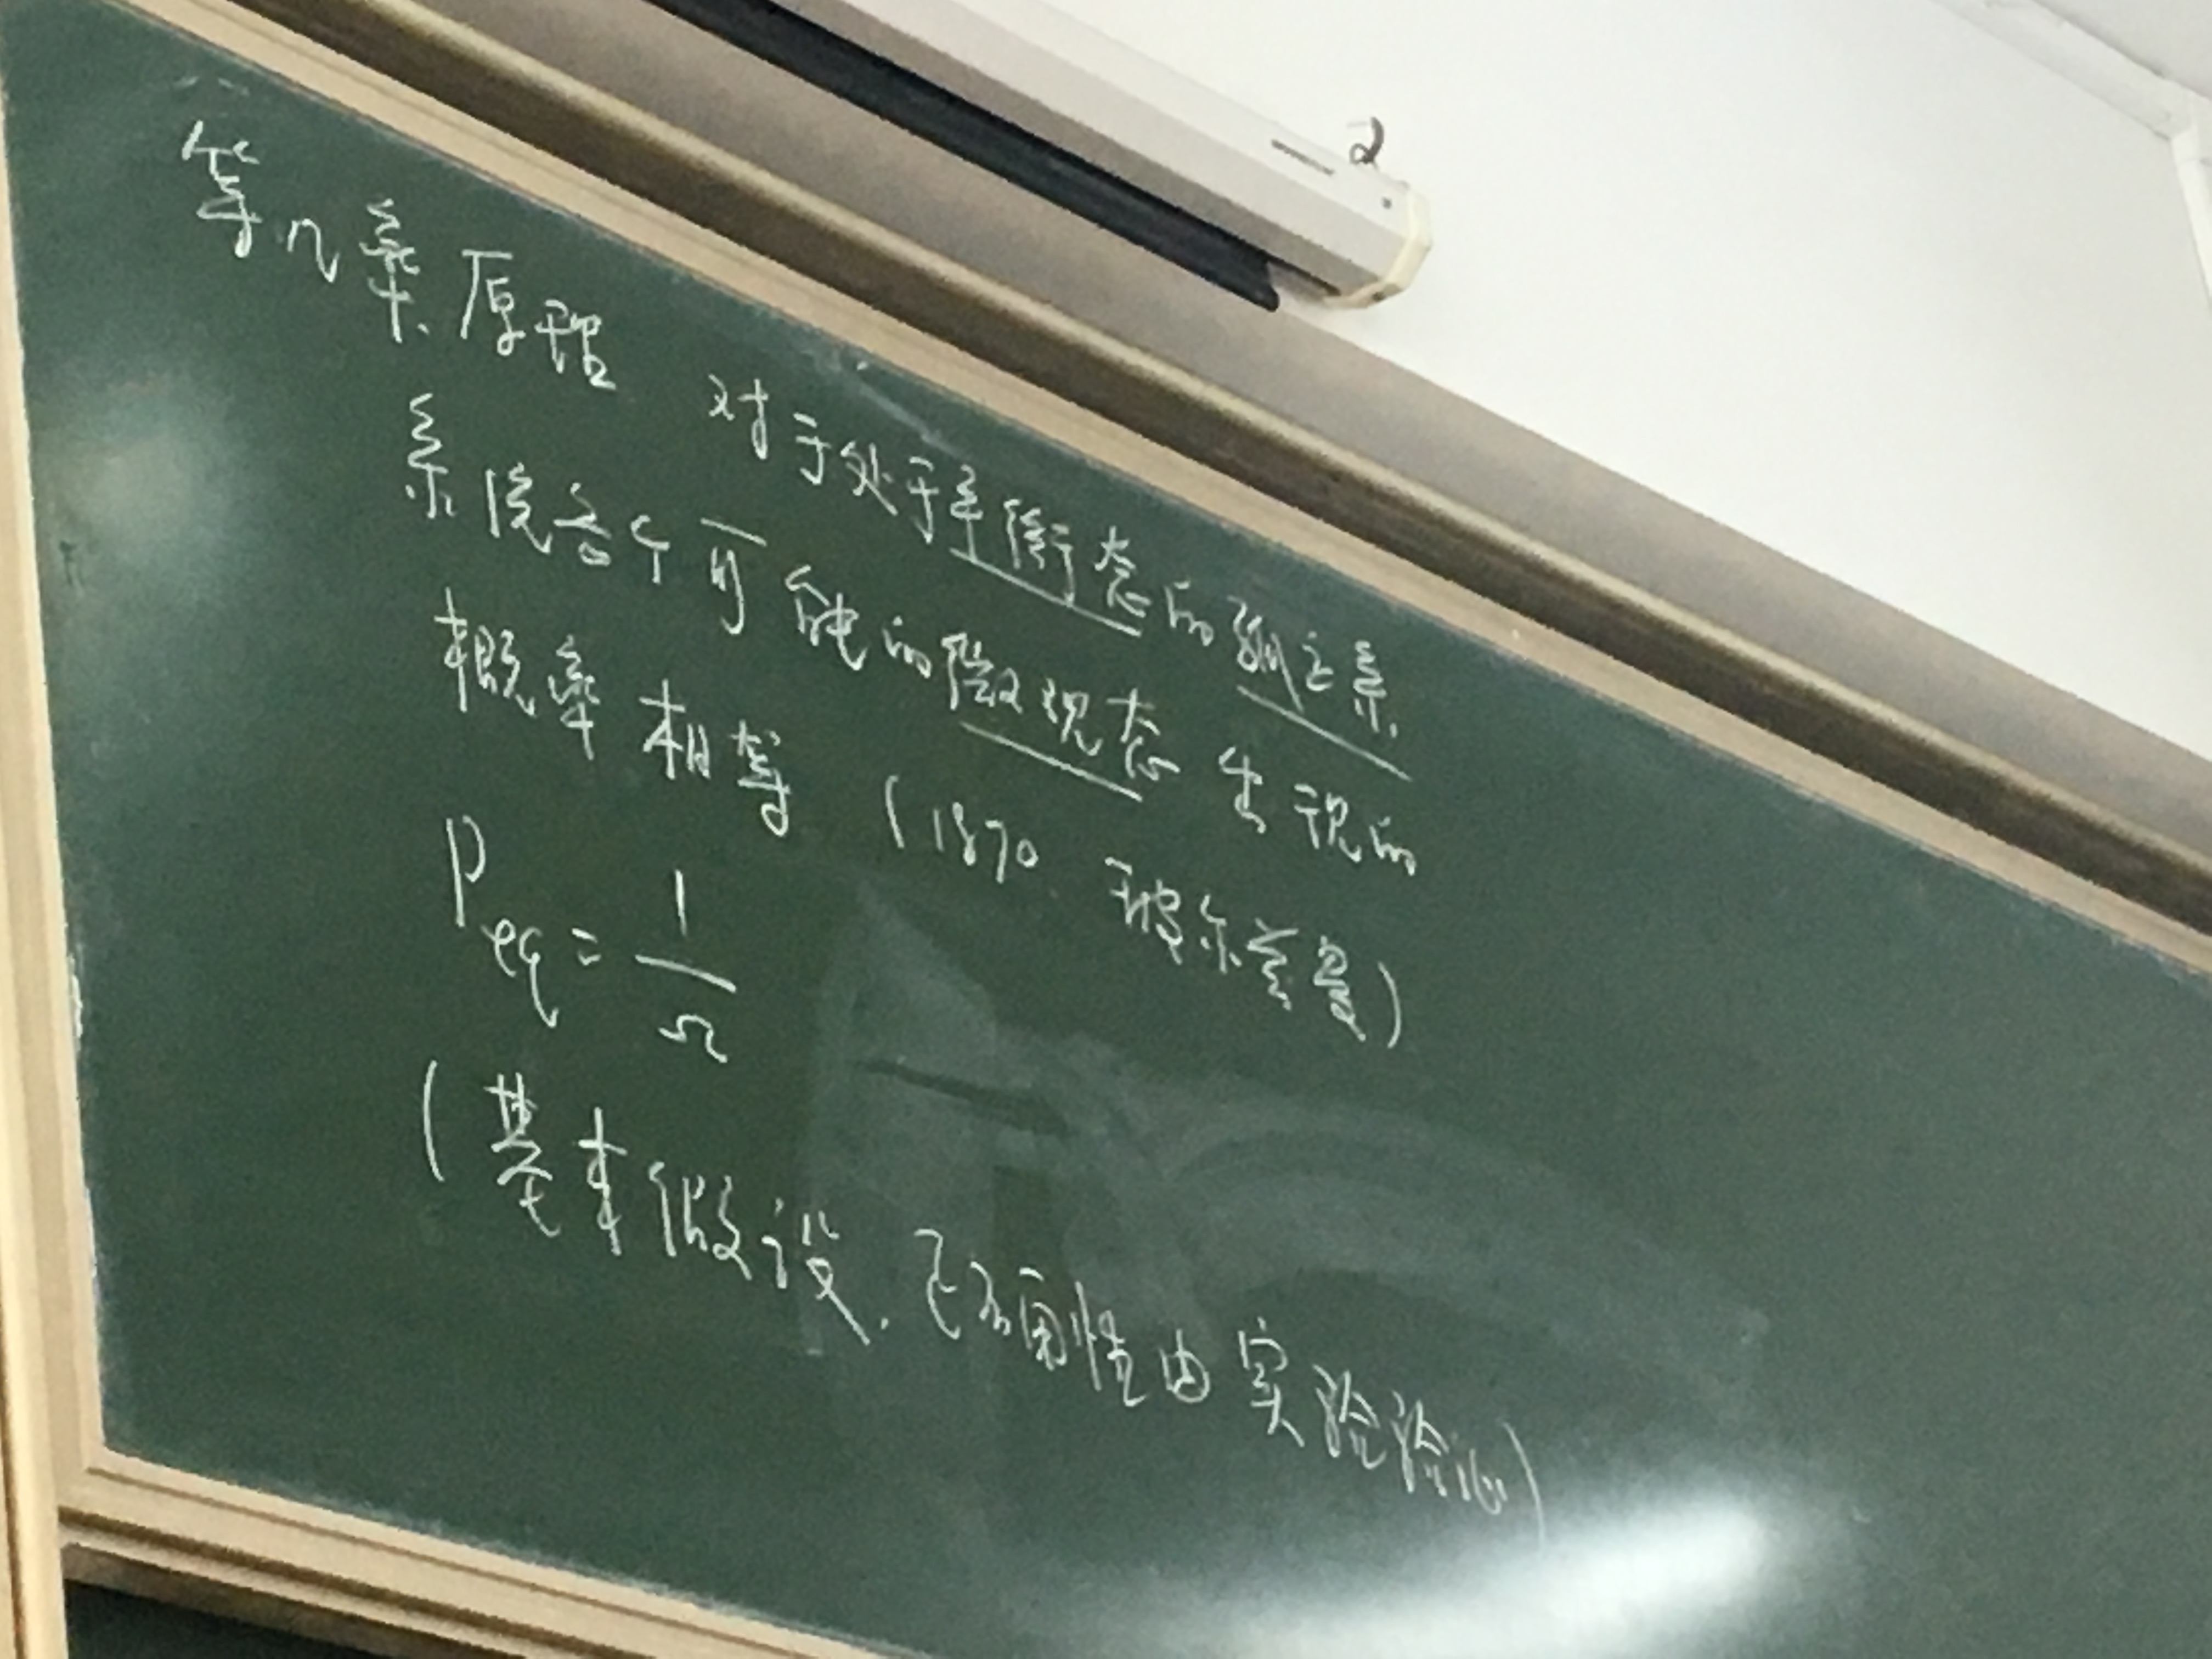 等几率原理 对于处于平衡态的孤立系
系统各个可能的微观态出现的
概率相等 (1870 玻尔兹曼)
Peq = 1/Ω
(基本假设.正确性由实验验证)